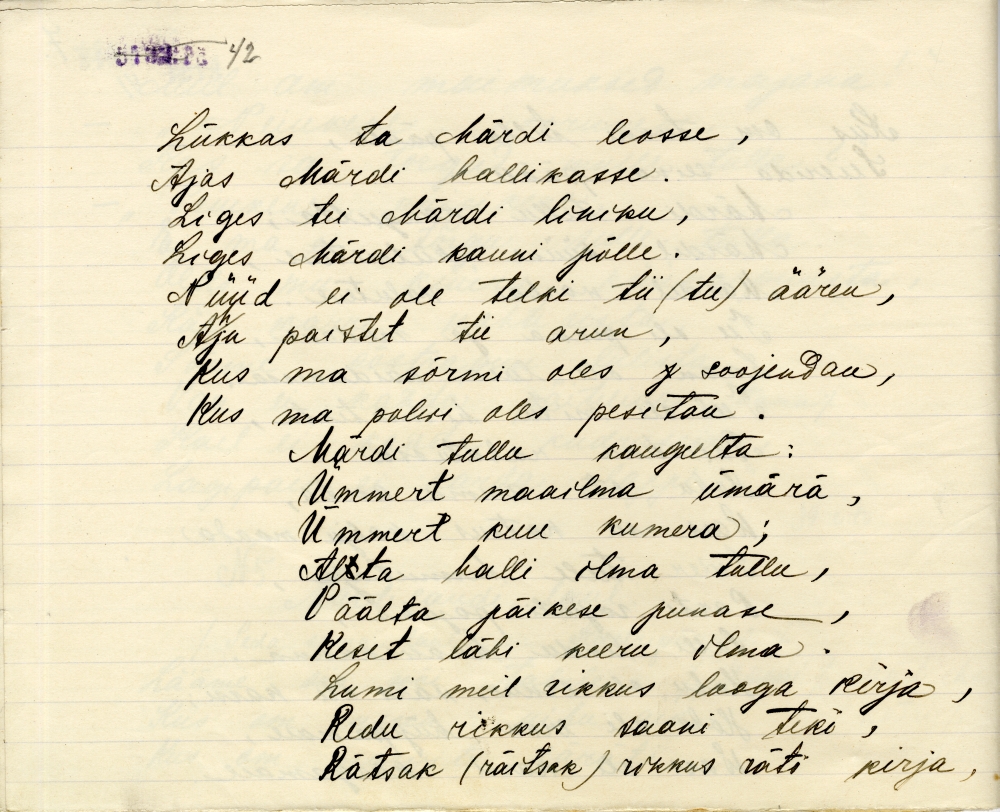 42
Lükkas ta Märdi leosse,
Ajas Märdi hallikasse.
Liges tei Märdi liniku,
Liges Märdi kauni põlle.
Nüüd ei ole telki tii (tee) äären,
Ahju paistet tii arun,
Kus ma sõrmi oles soojendan,
Kus ma polvi oles pesitan.
Märdi tullu kaugelta:
Ümmert maailma ümärä,
Ümmert kuu kumera;
Alta halli ilma tullu,
Päälta päikese punase,
Keset läbi keeru ilma.
Lumi meil rikkus looga kirja,
Redu rikkus saani teki,
Rätsak (räitsak) rikkus räti kirja,